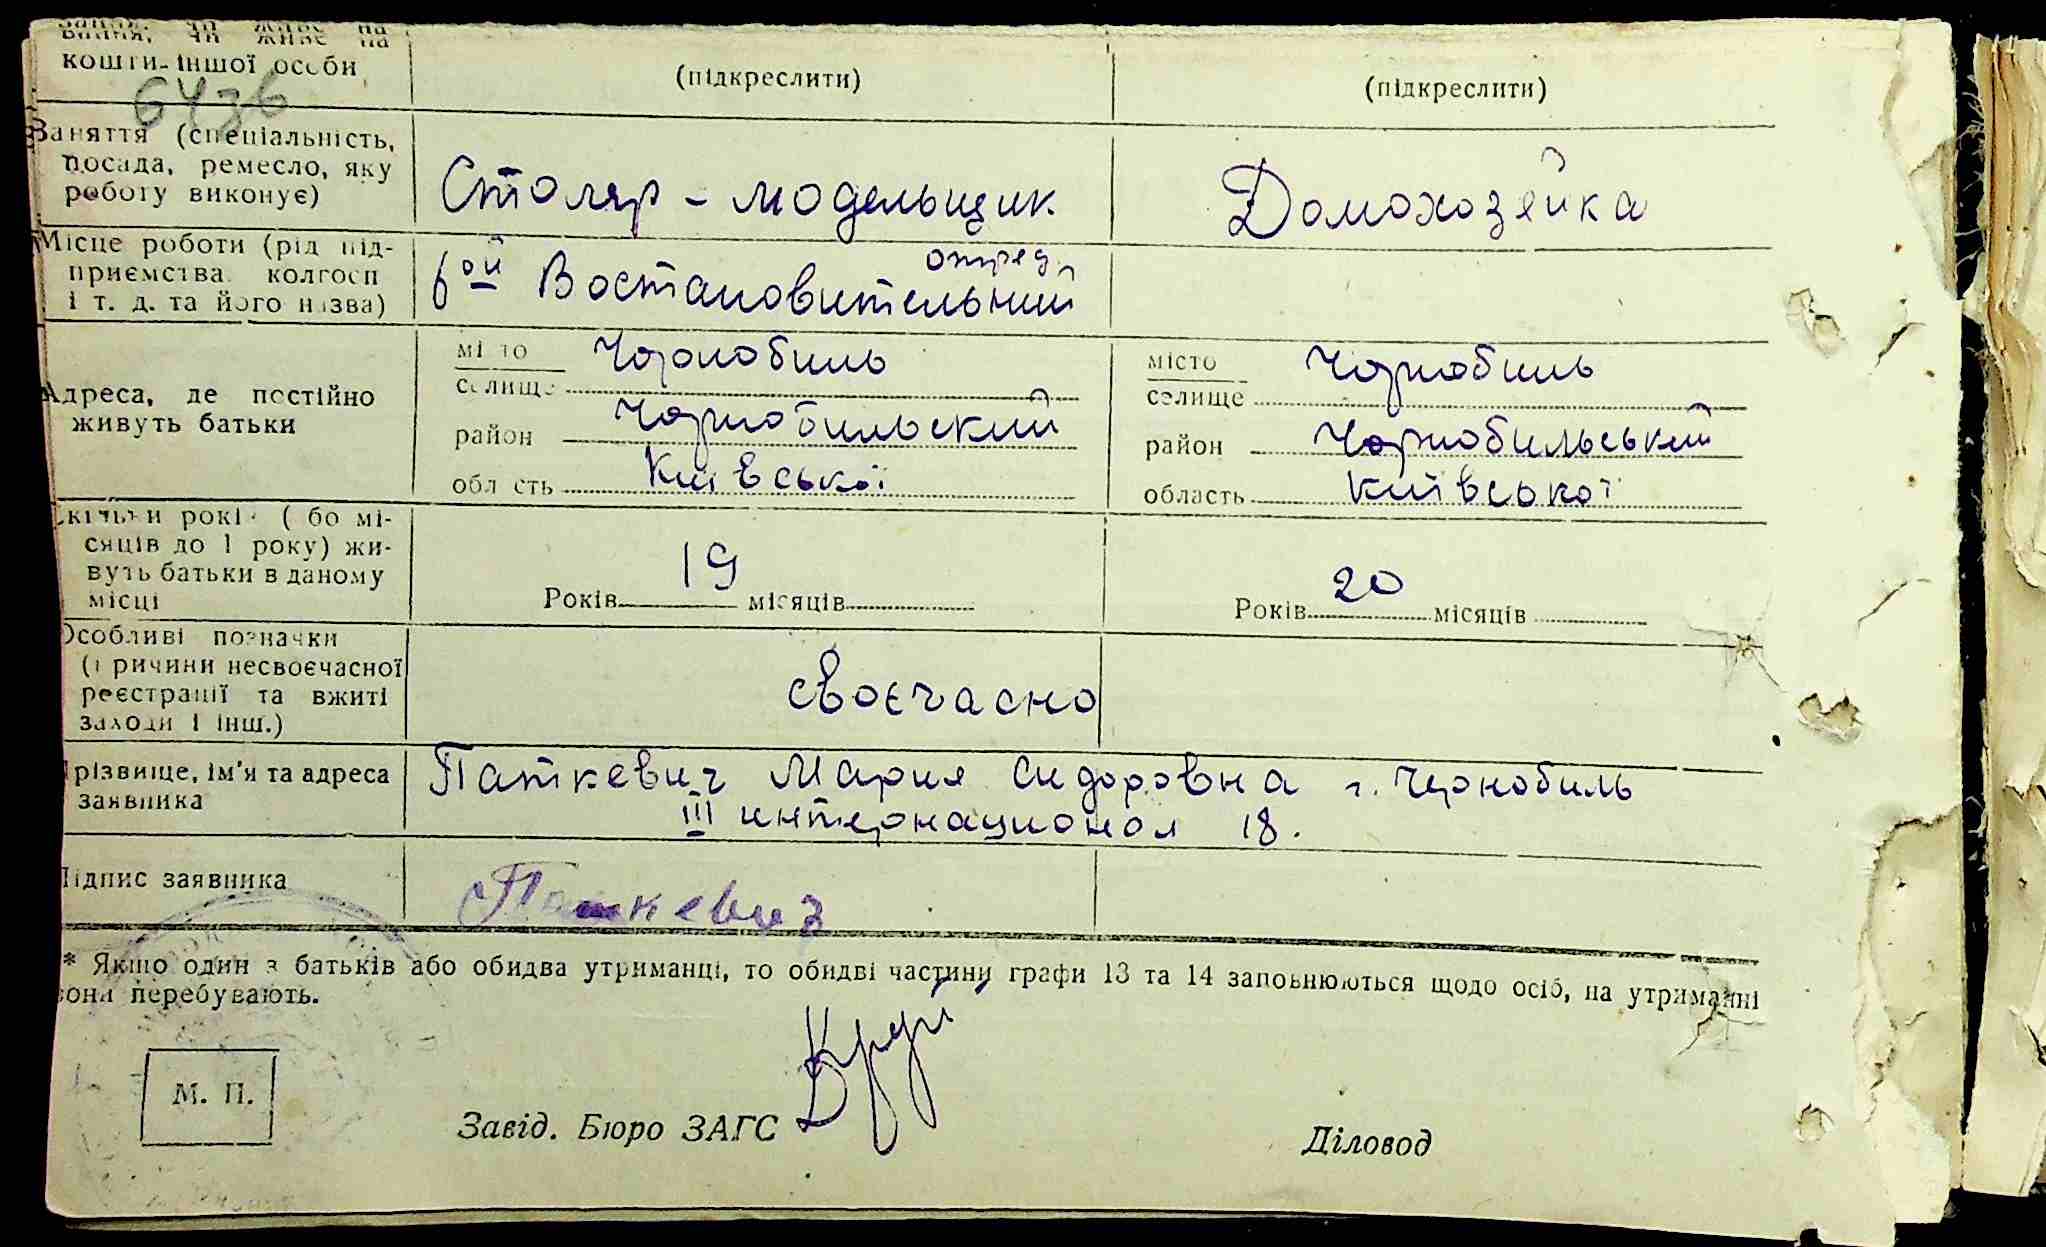 вання, чи живе на
кошти іншої особи (підкреслити) (підкреслити)
6436
Заняття (спеціальність, посада, ремесло, яку роботу виконує) Столяр - модельщик Домохозяйка
Місце роботи (рід підприємства колгосп і т. д. та його назва) 6ой Востановительний отряд
Адреса, де постійно живуть батьки
місто Чорнобиль місто Чорнобиль
селище селище
район Чорнобильский район Чорнобильський
область Київської область Київської
Скільки років (або місяців до 1 року) живуть батьки в даному місці
Років 19 місяців Років 20 місяців
Особливі позначки (причини несвоєчасної реєстрації та вжиті заходи і інш.) своєчасно
Прізвище, ім'я та адреса заявника Паткевич Мария Сидоровна г. Чернобиль
III интернационал 18.
Підпис заявника Паткевич
* Якщо один з батьків або обидва утриманці, то обидві частини графи 13 та 14 заповнюються щодо осіб, на утриманні
вони перебувають.
М. П.
Завід. Бюро ЗАГС Діловод